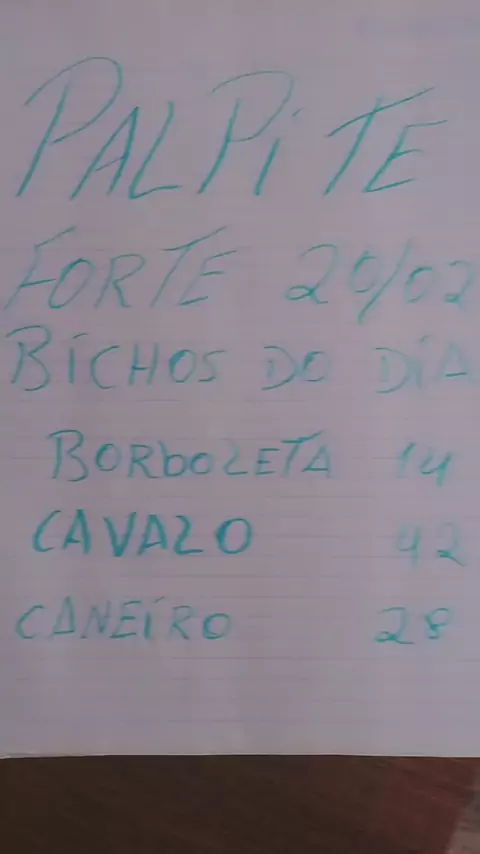 PALPiTE
FORTE 20/02
BICHOS DO DIA
BORBOLETA 14
CAVALO 42
CANEIRO 28